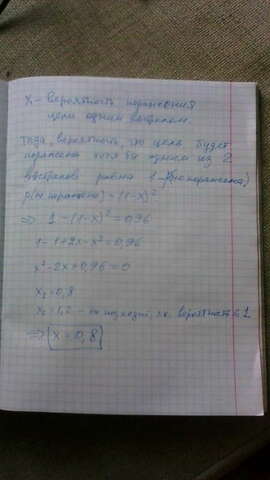 x - вероятность поражения
цели одним выстрелом.
Тогда, вероятность, что цель будет
поражена хотя бы одним из 2
выстрелов равна 1-p(не поражена)
p(не поражена) = (1-x)²
⇒ 1-(1-x)² = 0,96
1-1+2x-x² = 0,96
x²-2x+0,96=0
x₁=0,8
x₂=1,2 - не подходит, т.к. вероятность ≤ 1
⇒ x=0,8